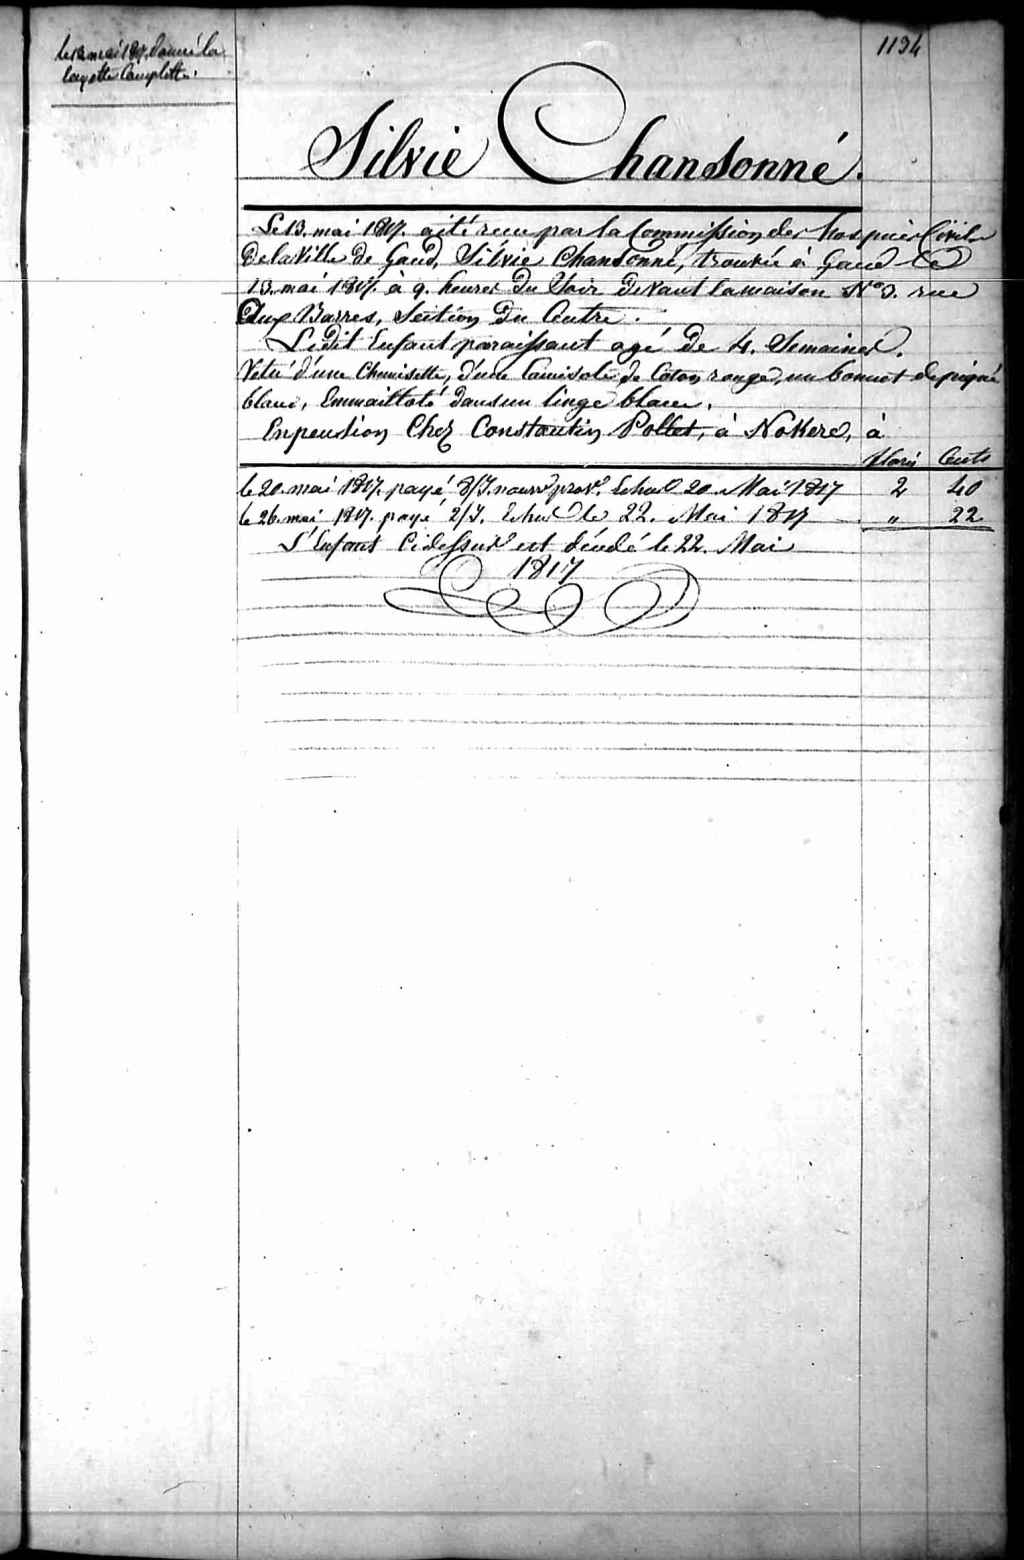 1134
le 13 mai 1817, donné la
layette Complette.
Silvie Chansonné.
Le 13. mai 1817. a été recu par la Commission des hospices Civils
de la Ville de Gand, Silvie Chansonné, trouvée à Gand le
13. mai 1817. à 9. heures du Soir devant la maison N° 3. rue
aux Barres, Section du Centre.
Ledit Enfant paraissant agé de 4. Semaines.
Vetu d'une Chemisette, d'une Camisole de Coton rouge, un bonnet de piqué
blanc, Emmailloté dans un linge blanc.
En pension Chez Constantin Pollet, à Nokere, à
Florins Cents
le 20. mai 1817. payé 8/J. nourre prove. Echu le 20. Mai 1817 2 40
le 26. mai 1817. payé 2/J. Echu le 22. Mai 1817 " 22
L'Enfant Cidessus est décédé le 22. Mai
1817